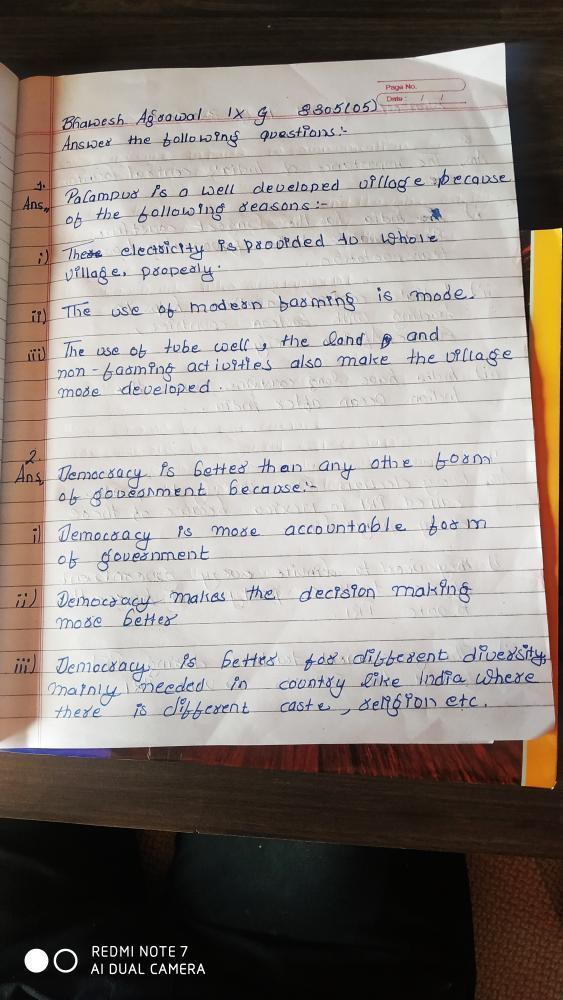 Page No.
Date: / /
Bhawesh Agrawal IX G 8305(05)
Answer the following questions:-
1.
Ans, Palampur is a well developed village because
of the following reasons:-
i) There electricity is provided to whole
village, properly.
ii) The use of modern farming is mode.
iii) The use of tube well, the land and
non-farming activities also make the village
more developed.
2.
Ans, Democracy is better than any othe form
of government because:-
i) Democracy is more accountable form
of government
ii) Democracy makes the decision making
more better
iii) Democracy is better for different diversity
mainly needed in country like India where
there is different caste, religion etc.
REDMI NOTE 7
AI DUAL CAMERA